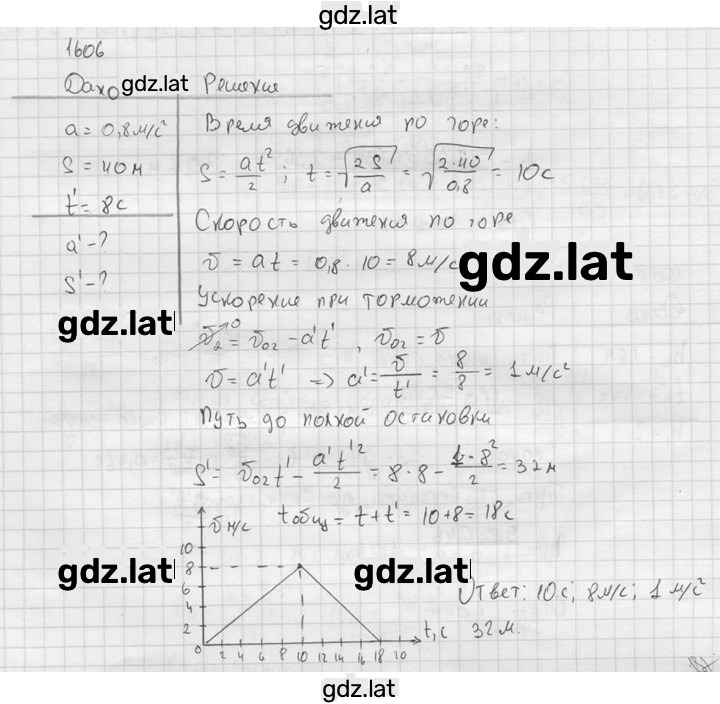 gdz.lat
1606
Дано
gdz.lat
Решение
a = 0,8 м/с²
S = 40 м
t' = 8 с
a' - ?
S' - ?
Время движения по горе:
S = at²/2 ; t = √(2S/a) = √(2·40/0,8) = 10 с
Скорость движения по горе
v = at = 0,8 · 10 = 8 м/с
gdz.lat
Ускорение при торможении
gdz.lat
v₂→0 = v₀₂ - a't' , v₀₂ = v
v = a't' => a' = v/t' = 8/8 = 1 м/с²
Путь до полной остановки
S' = v₀₂t' - a't'²/2 = 8 · 8 - 1·8²/2 = 32 м
tобщ = t + t' = 10 + 8 = 18 с
v м/с
10
8
6
4
2
0 2 4 6 8 10 12 14 16 18 20
t, с
gdz.lat
gdz.lat
Ответ: 10 с; 8 м/с; 1 м/с²
32 м.
gdz.lat